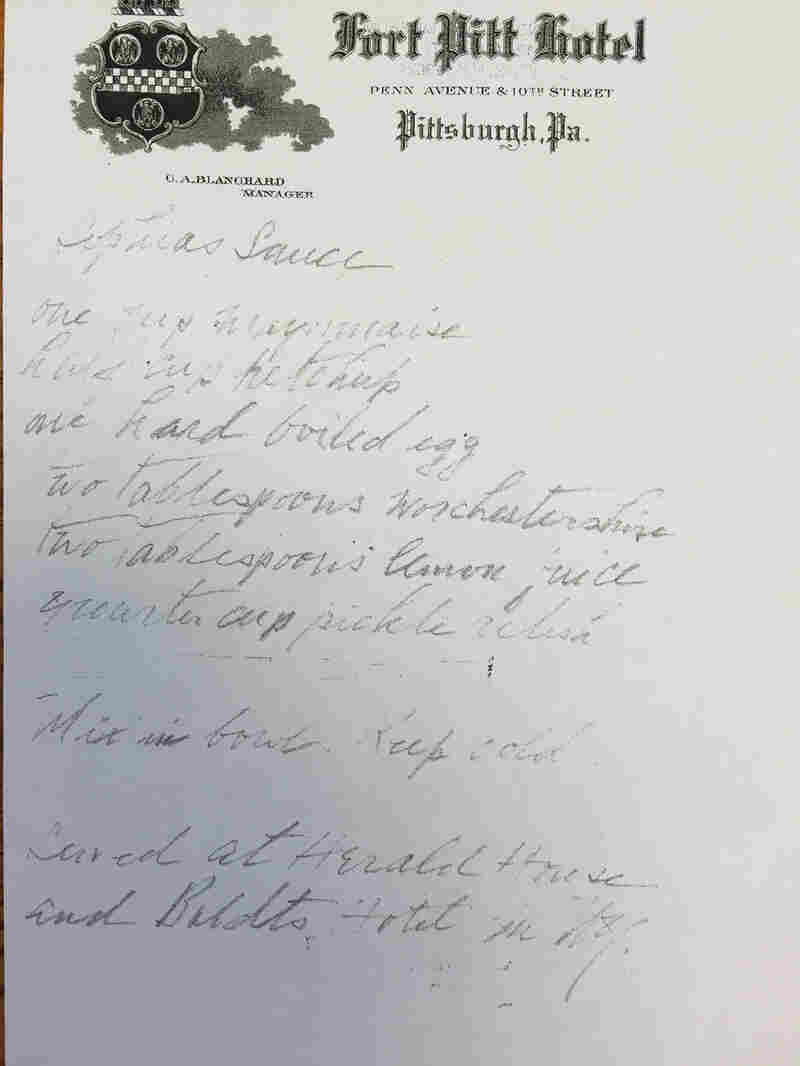 Fort Pitt Hotel
PENN AVENUE & 10TH STREET
Pittsburgh, Pa.
C. A. BLANCHARD
MANAGER
Sophias Sauce
one cup mayonnaise
half cup ketchup
one hard boiled egg
two tablespoons worchestershire
two tablespoons lemon juice
quarter cup pickle relish
Mix in bowl. Keep cold
Served at Herald House
and Boldts Hotel in N.Y.